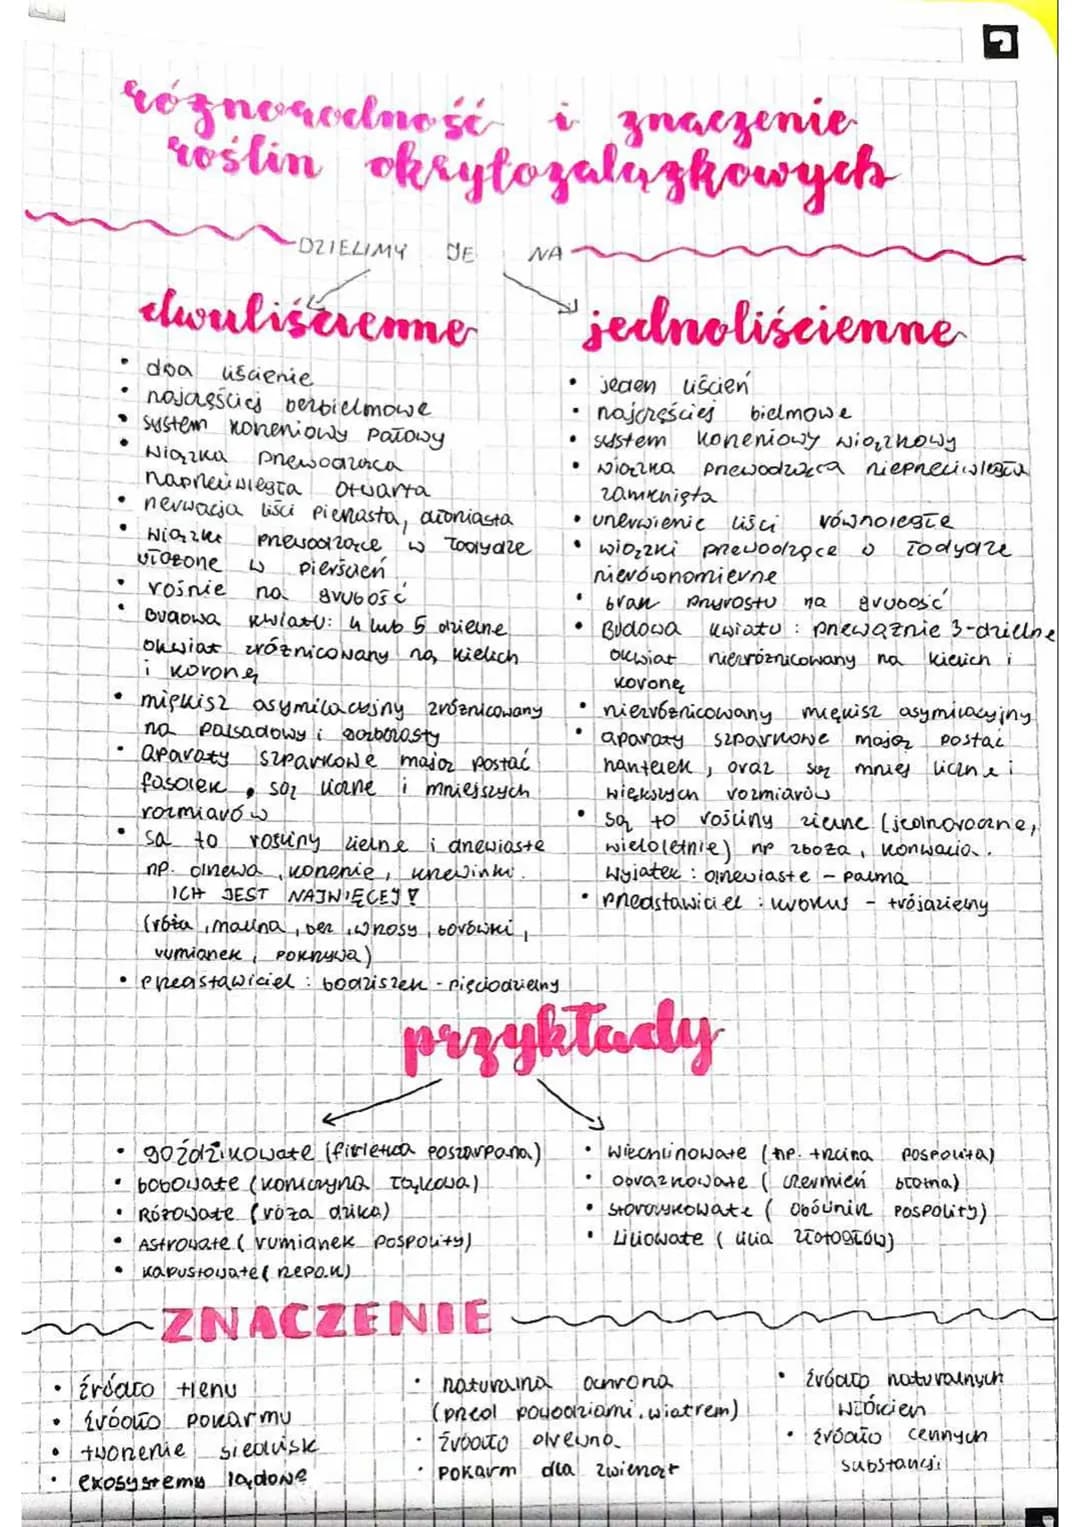 różnorodność i znaczenie
roślin okrytozalążkowych
DZIELIMY JE NA
dwuliścienne
• dwa liścienie
• najczęściej bezbielmowe
• system korzeniowy palowy
• wiązka przewodząca
naprzeciwległa otwarta
• nerwacja liści pierzasta, dłoniasta
• wiązki przewodzące w łodydze
ułożone w pierścień
• rośnie na grubość
• Budowa kwiatu: 4 lub 5 dzielne
okwiat zróżnicowany na kielich
i koronę
• miękisz asymilacyjny zróżnicowany
na palisadowy i gąbczasty
• aparaty szparkowe mają postać
fasolek, są liczne i mniejszych
rozmiarów
• są to rośliny zielne i drzewiaste
np. drzewa, korzenie, krzewinki.
ICH JEST NAJWIĘCEJ!
(róża, malina, bez, wrzosy, borówki,
rumianek, pokrzywa)
• Przedstawiciel: bodziszek - pięciodzielny
jednoliścienne
• jeden liścień
• najczęściej bielmowe
• system korzeniowy wiązkowy
• wiązka przewodząca nieprzeciwległa
zamknięta
• unerwienie liści równoległe
• wiązki przewodzące w łodydze
nierównomierne
• brak przyrostu na grubość
• Budowa kwiatu: przeważnie 3-dzielne
okwiat niezróżnicowany na kielich i
koronę
• niezróżnicowany miękisz asymilacyjny
• aparaty szparkowe mają postać
hantelek, oraz są mniej liczne i
większych rozmiarów
• są to rośliny zielne (jednoroczne,
wieloletnie) np zboża, konwalia.
Wyjątek: drzewiaste - palma
• przedstawiciel: krokus - trójdzielny
przykłady
• goździkowate (firletka poszarpana)
• bobowate (koniczyna łąkowa)
• Różowate (róża dzika)
• Astrowate (rumianek pospolity)
• kapustowate (rzepak)
• wiechlinowate (np. trzcina pospolita)
• obrazkowate (czermień błotna)
• storczykowate (obólinik pospolity)
• Liliowate (lilia złotogłów)
ZNACZENIE
• źródło tlenu
• źródło pokarmu
• tworzenie siedlisk
• ekosystemy lądowe
• naturalna ochrona
(przed powodziami, wiatrem)
• źródło drewna
• pokarm dla zwierząt
• źródło naturalnych
włókien
• źródło cennych
substancji